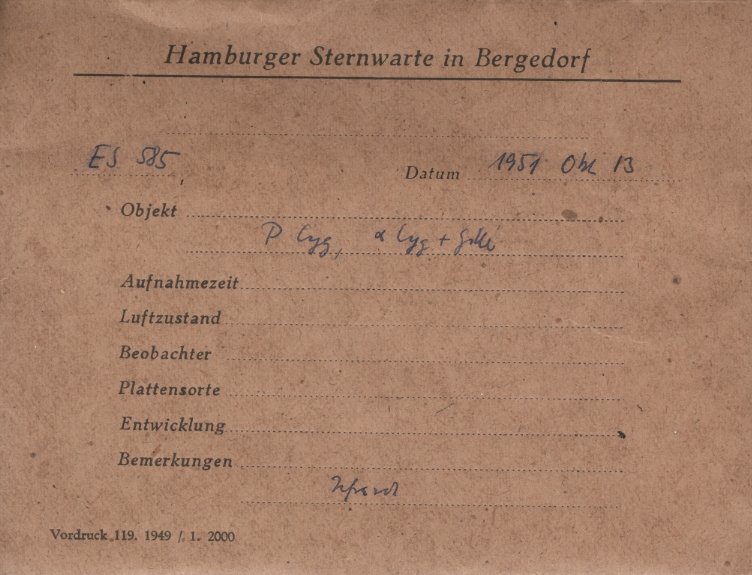 Hamburger Sternwarte in Bergedorf
ES 585 Datum 1951 Okt 13
Objekt
P Cyg, α Cyg + Gitter
Aufnahmezeit
Luftzustand
Beobachter
Plattensorte
Entwicklung
Bemerkungen
Vordruck 119. 1949 / 1. 2000